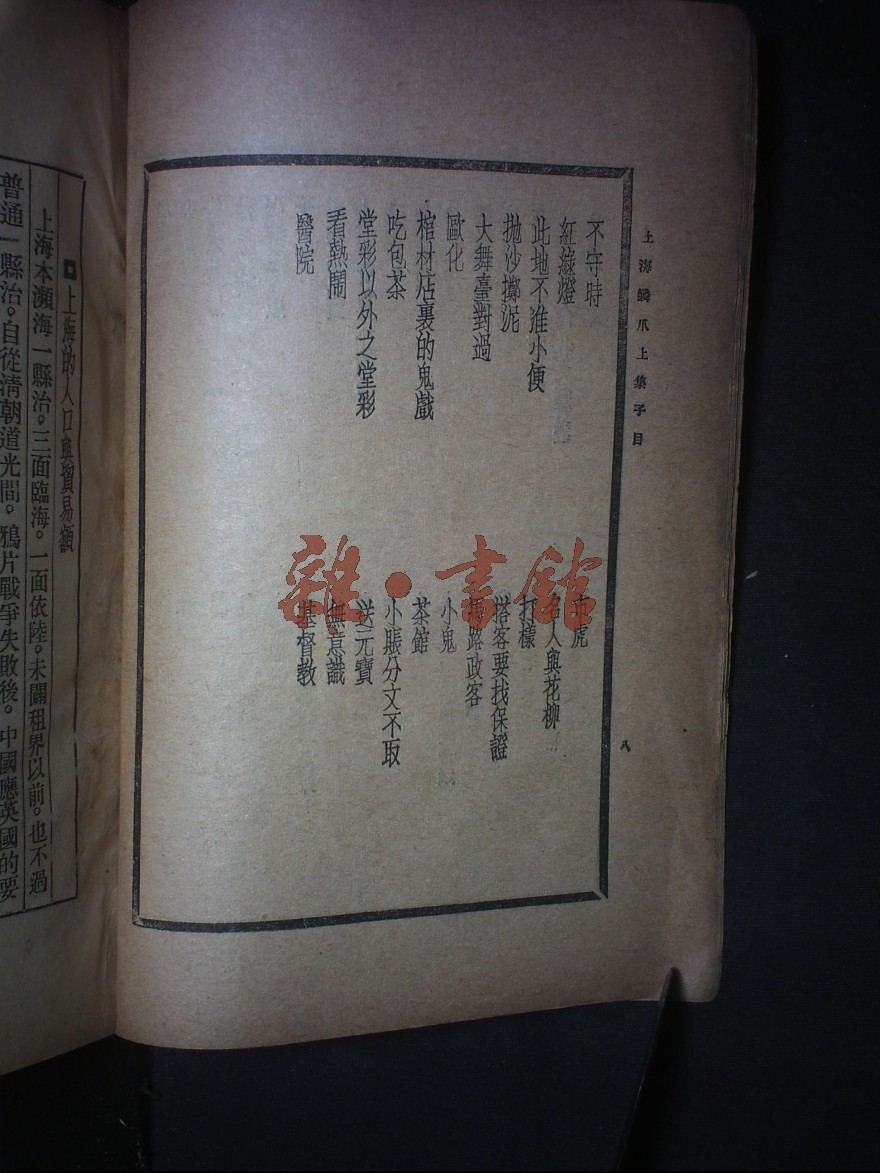 上海鱗爪上集子目
八
不守時
紅綠燈
此地不准小便
拋沙擲泥
大舞臺對過
歐化
棺材店裏的鬼戲
吃包茶
堂彩以外之堂彩
看熱鬧
醫院
虎
名人與花柳
打樣
搭客要找保證
馬路政客
小鬼
茶館
小賬分文不取
送元寶
無意識
基督教
雜·書館
上海的人口與貿易額
上海本瀕海一縣治。三面臨海。一面依陸。未闢租界以前。也不過
普通一縣治。自從清朝道光間。鴉片戰爭失敗後。中國應英國的要